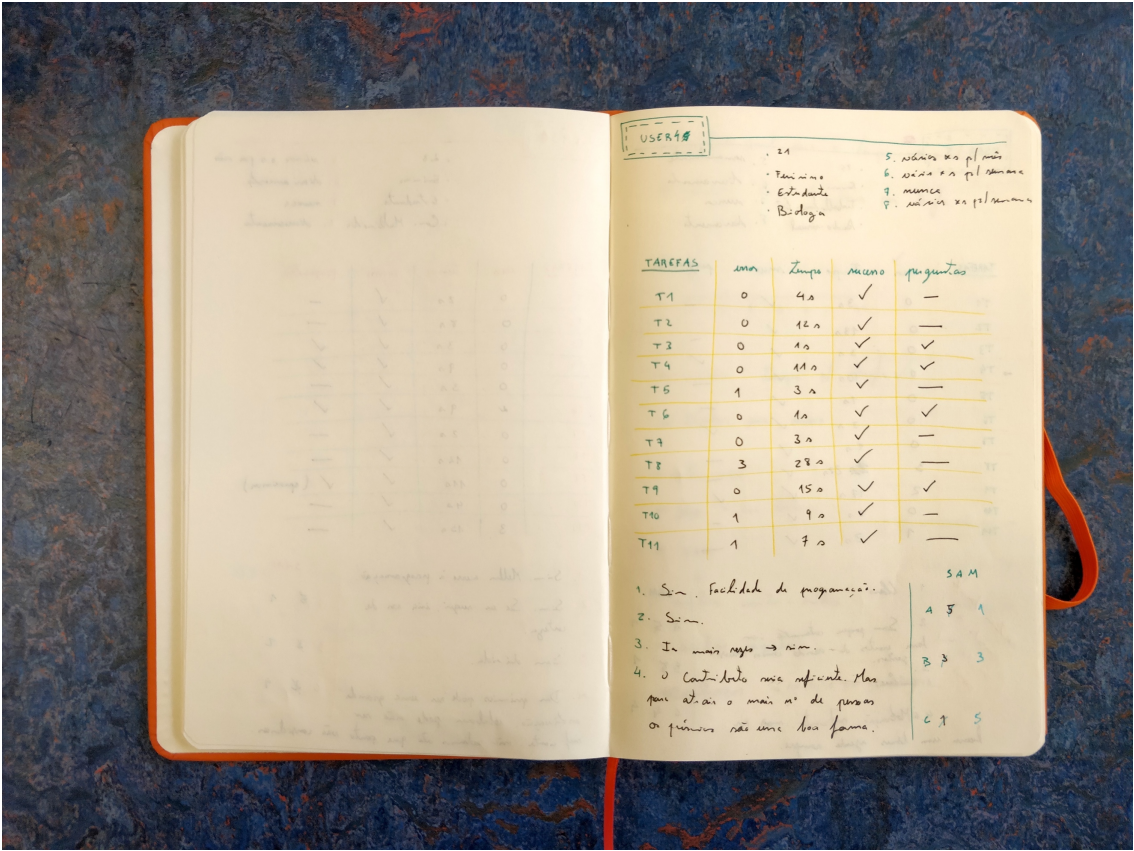 USER
. 21
· Feminino
· Estudante
· Biologa
5. vários xs p/ mês
6. vários xs p/ semana
7. nunca
8. vários xs p/ semana
TAREFAS erros tempo sucesso perguntas
T1 0 4s ✓ —
T2 0 12s ✓ —
T3 0 1s ✓ ✓
T4 0 11s ✓ ✓
T5 1 3s ✓ —
T6 0 1s ✓ ✓
T7 0 3s ✓ —
T8 3 28s ✓ —
T9 0 15s ✓ ✓
T10 1 9s ✓ —
T11 1 7s ✓ —
1. Sim. Facilidade de programação.
2. Sim.
3. Ir mais vezes → sim.
4. O contributo seria suficiente. Mas
para atrair o mais nº de pessoas
os prémios são uma boa forma.
SAM
A 5 1
B 3 3
C 1 5